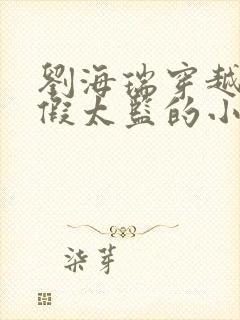 劉海瑞穿越
假太監的小
柒芽